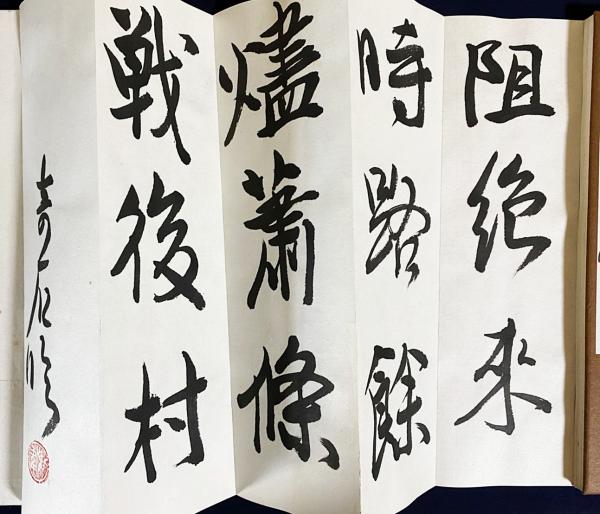 阻絶来
時路餘
燼蕭條
戦後村